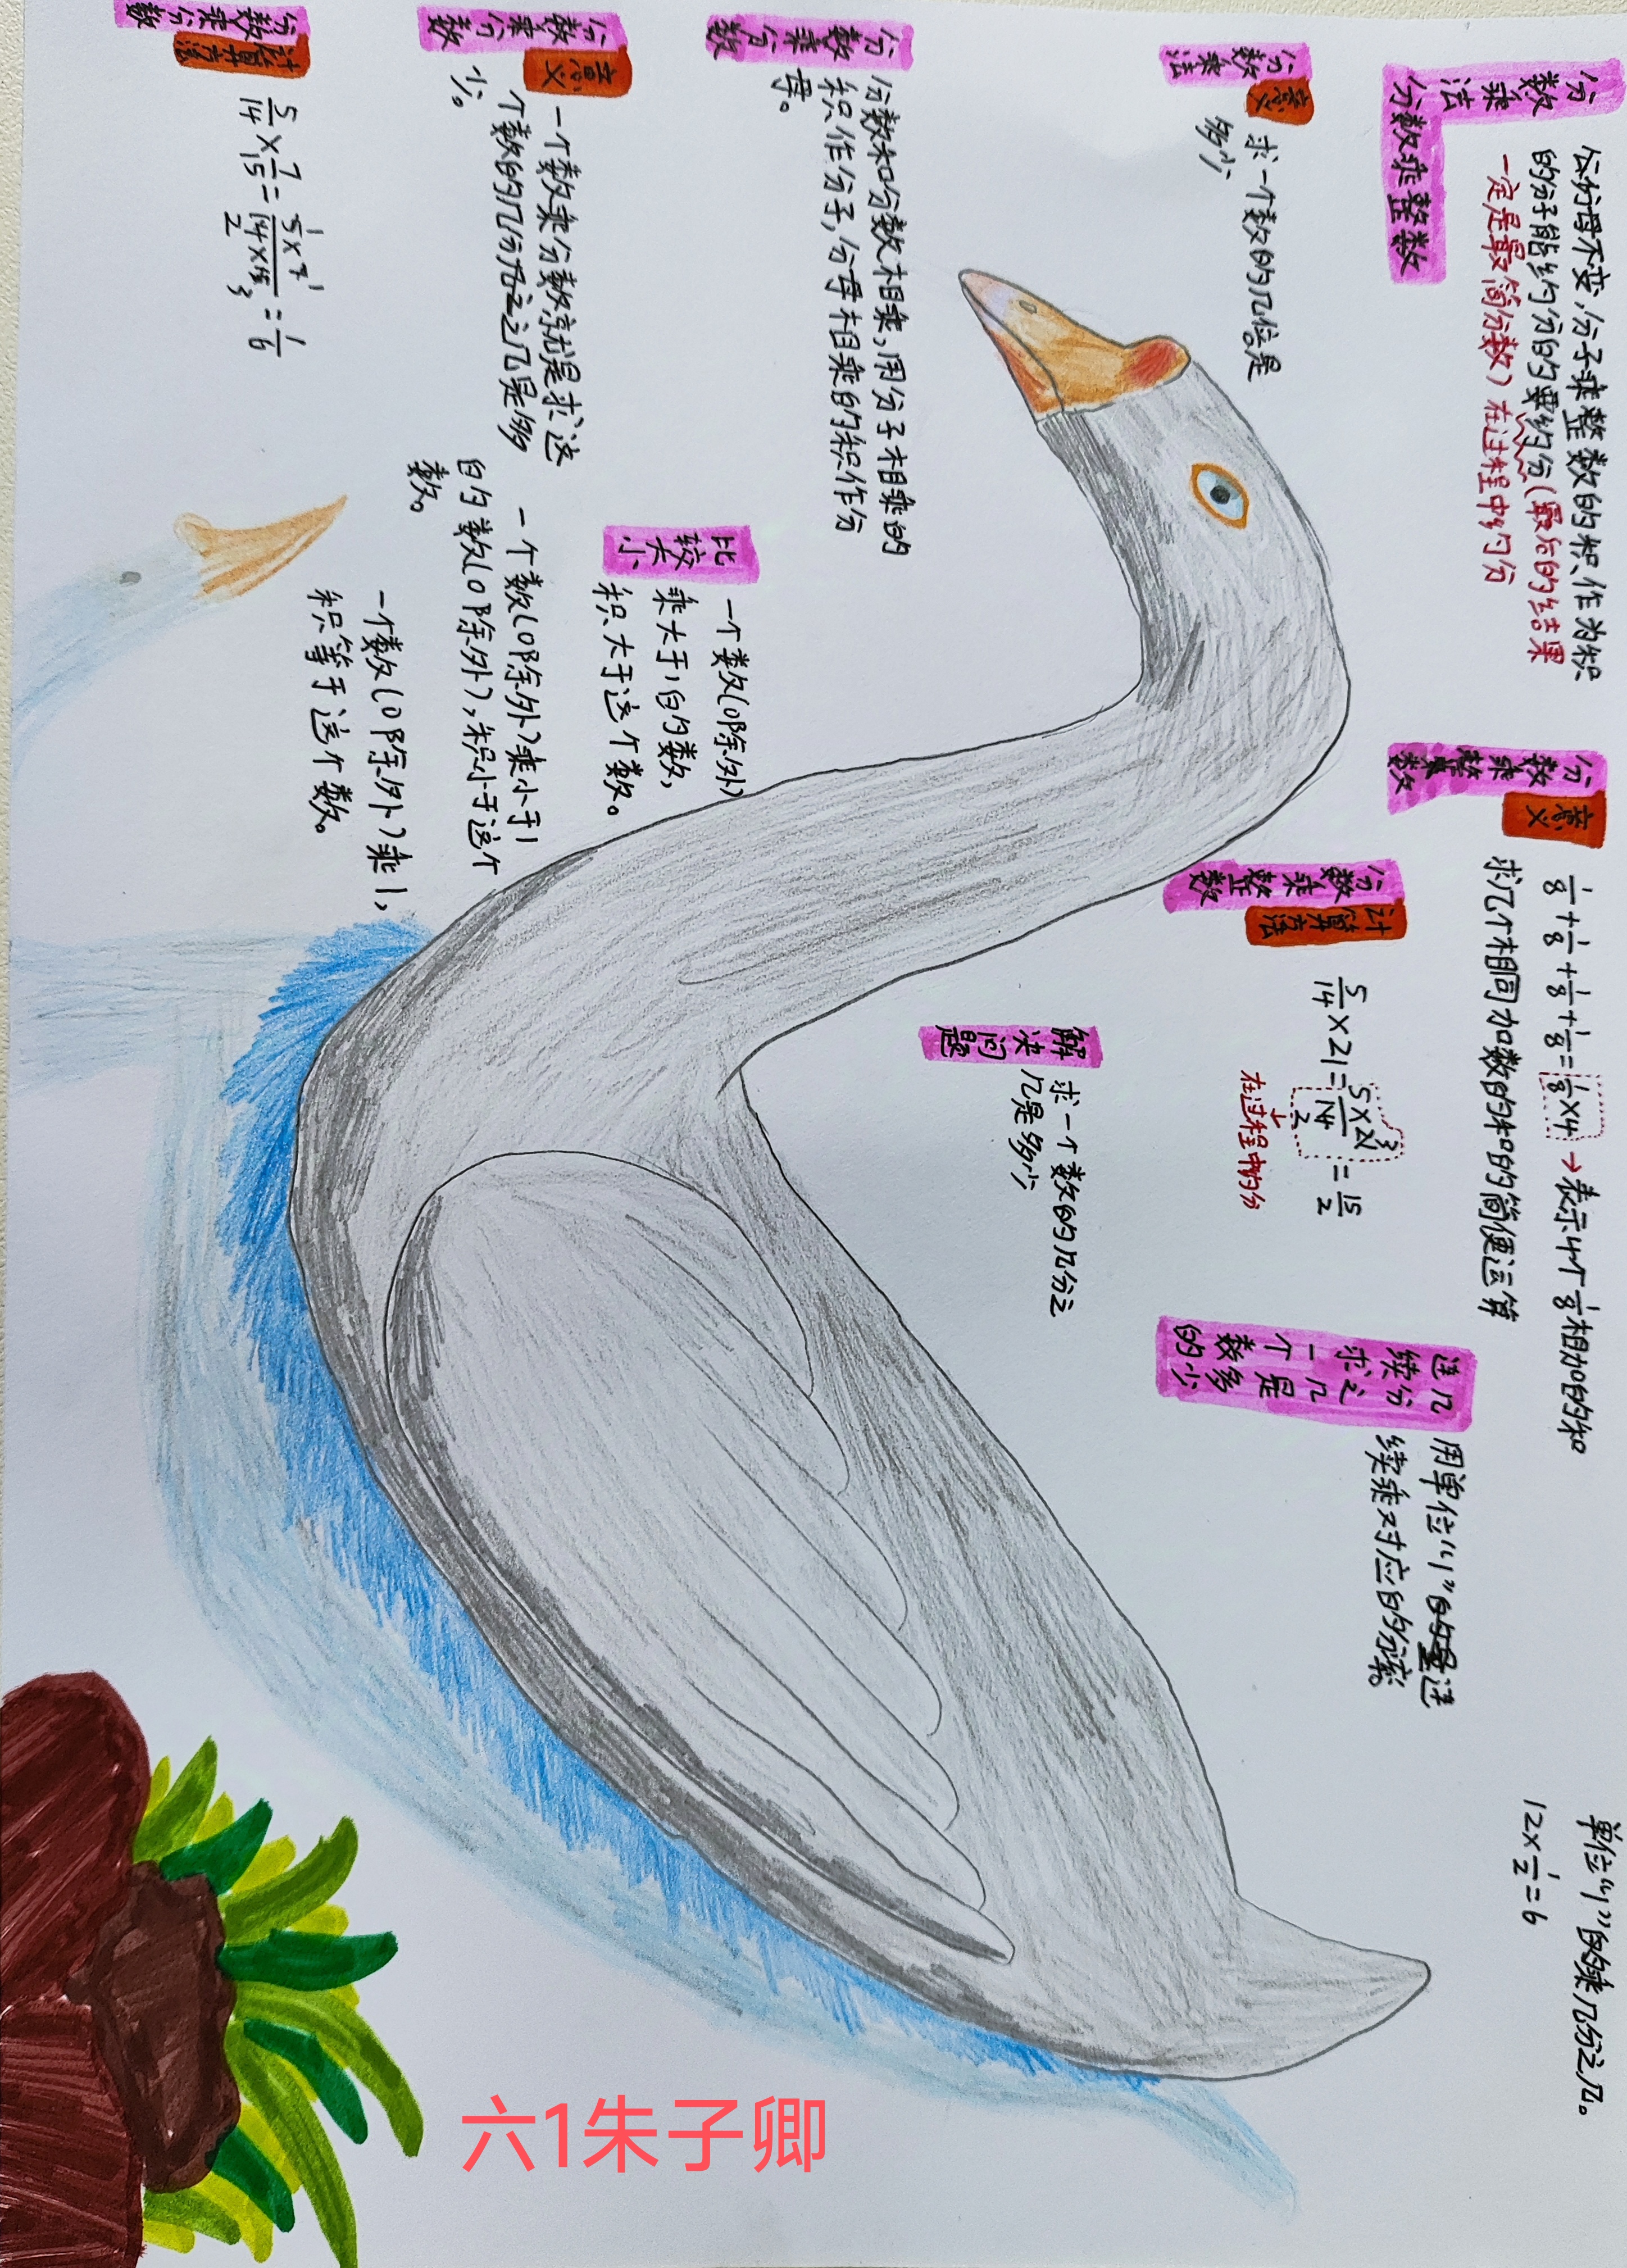 分数乘法
分数乘整数
分母不变,分子乘整数的积作为积
的分子能约分的要约分(最后的结果
一定是最简分数)在过程中约分
分数乘整数
意义
1/8+1/8+1/8+1/8=1/8×4→表示4个1/8相加的和
求几个相同加数的和的简便运算
单位“1”的乘几分之几。
12×1/2=6
分数乘法
意义
求一个数的几倍是
多少
分数乘整数
计算方法
5/14×21=5×21/14=15/2
3
2
在过程中约分
连续求一个数的
几分之几是多少
用单位“1”的量连
续乘对应的分率。
解决问题
求一个数的几分之
几是多少
分数乘分数
分数和分数相乘,用分子相乘的
积作分子,分母相乘的积作分
母。
比较大小
一个数(0除外)
乘大于1的数,
积大于这个数。
一个数(0除外)乘小于1
的数(0除外),积小于这个
数。
一个数(0除外)乘1,
积等于这个数。
分数乘分数
意义
一个数乘分数就是求这
个数的几分之几是多
少。
分数乘分数
计算方法
5/14×7/15=5×7/14×15=1/6
1 1
2 3
六1朱子卿